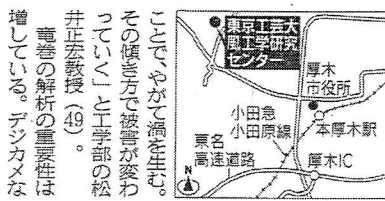 ことで、やがて渦を生む。
その傾き方で被害が変わ
っていく」と工学部の松
井正宏教授(49)。
竜巻の解析の重要性は
増している。デジカメな
東京工芸大
風工学研究
センター
厚木
市役所
小田急
小田原線
本厚木駅
東名
高速道路
厚木IC
N